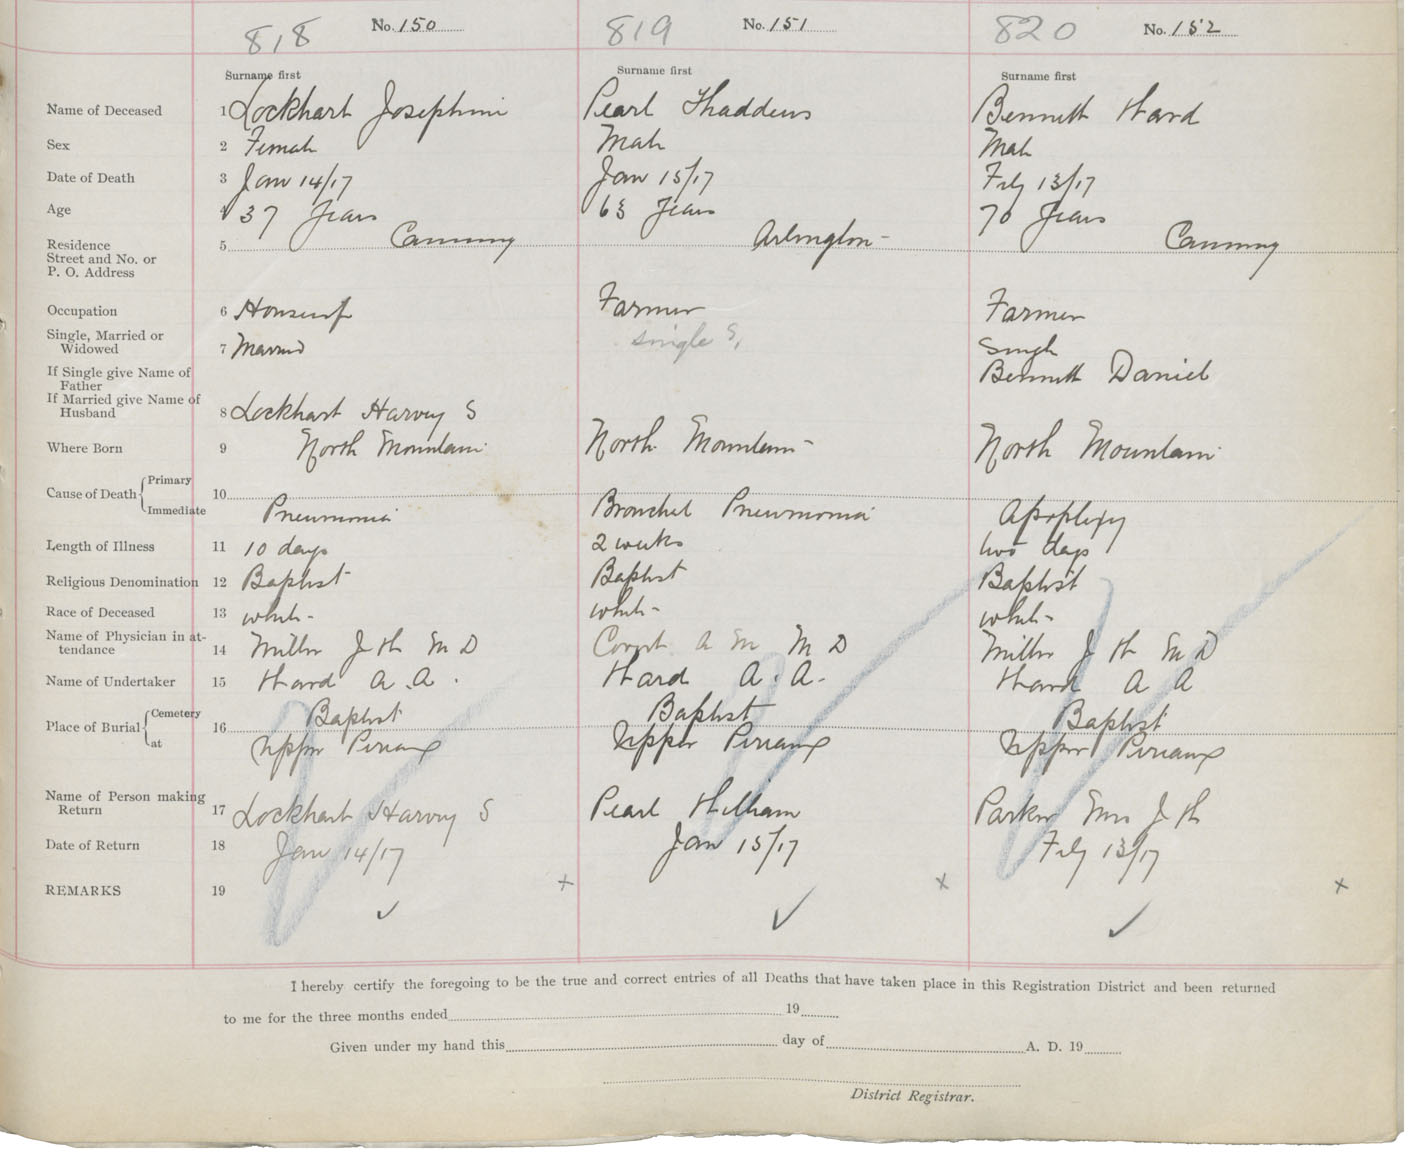 818 No. 150 819 No. 151 820 No. 152
Surname first Surname first Surname first
Name of Deceased 1 Lockhart Josephine Pearl Thaddeus Bennett Ward
Sex 2 Female Male Male
Date of Death 3 Jan 14/17 Jan 15/17 Feby 13/17
Age 4 37 Years 63 Years 70 Years
Residence 5 Canning Arlington Canning
Street and No. or
P. O. Address
Occupation 6 Housewife Farmer Farmer
Single, Married or
Widowed 7 Married single S, Single
If Single give Name of Bennett Daniel
Father
If Married give Name of
Husband 8 Lockhart Harvey S
Where Born 9 North Mountain North Mountain North Mountain
Cause of Death Primary 10
Immediate Pneumonia Bronchel Pneumonia Apoplexy
Length of Illness 11 10 days 2 weeks two days
Religious Denomination 12 Baptist Baptist Baptist
Race of Deceased 13 white white white
Name of Physician in at-
tendance 14 Miller J H M D A M M D Miller J H M D
Name of Undertaker 15 Ward A. A. Ward A. A. Ward A A
Place of Burial Cemetery 16 Baptist Baptist Baptist
at Upper Pereaux Upper Pereaux Upper Pereaux
Name of Person making
Return 17 Lockhart Harvey S Pearl William Parker Mrs J H
Date of Return 18 Jan 14/17 Jan 15/17 Feby 13/17
REMARKS 19 x x x
✓ ✓ ✓
I hereby certify the foregoing to be the true and correct entries of all Deaths that have taken place in this Registration District and been returned
to me for the three months ended 19
Given under my hand this day of A. D. 19
District Registrar.